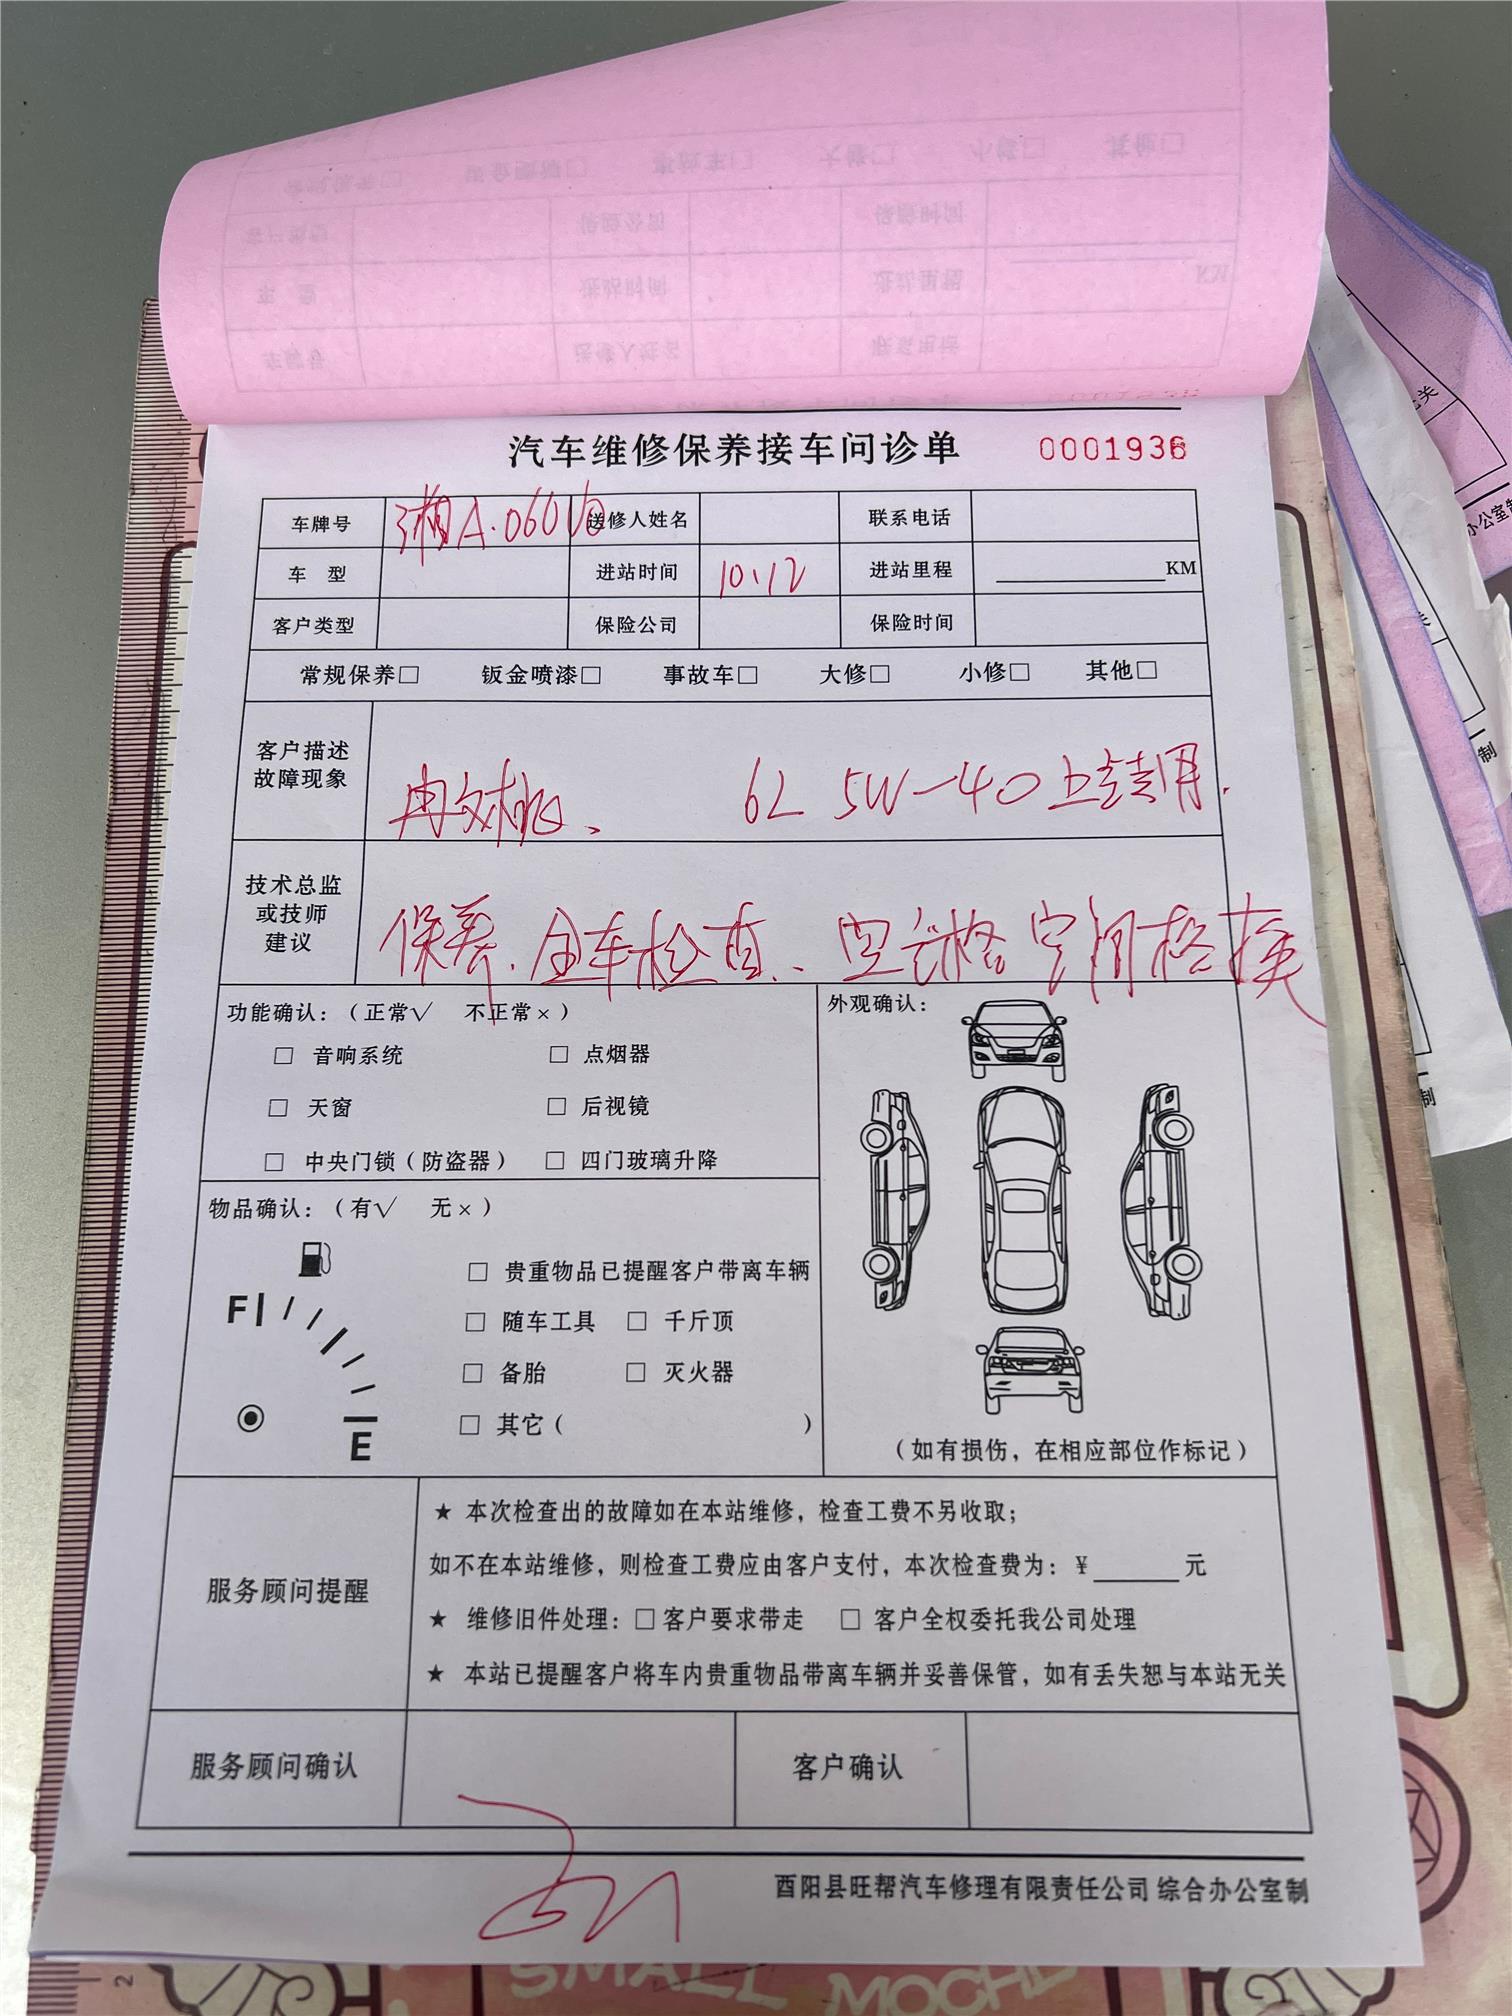 汽车维修保养接车问诊单 0001936
车牌号 湘A·060V0 送修人姓名 联系电话
车 型 进站时间 10.12 进站里程 KM
客户类型 保险公司 保险时间
常规保养□ 钣金喷漆□ 事故车□ 大修□ 小修□ 其他□
客户描述
故障现象
6L 5W-40
技术总监
或技师
建议
保养、全车检查、空 格 空 格换
功能确认：（正常√ 不正常×）
□ 音响系统 □ 点烟器
□ 天窗 □ 后视镜
□ 中央门锁（防盗器） □ 四门玻璃升降
外观确认：
（如有损伤，在相应部位作标记）
物品确认：（有√ 无×）
□ 贵重物品已提醒客户带离车辆
□ 随车工具 □ 千斤顶
□ 备胎 □ 灭火器
□ 其它（ ）
F
E
服务顾问提醒
★ 本次检查出的故障如在本站维修，检查工费不另收取；
如不在本站维修，则检查工费应由客户支付，本次检查费为：￥______元
★ 维修旧件处理：□ 客户要求带走 □ 客户全权委托我公司处理
★ 本站已提醒客户将车内贵重物品带离车辆并妥善保管，如有丢失恕与本站无关
服务顾问确认 客户确认
酉阳县旺帮汽车修理有限责任公司 综合办公室制
2
SMALL MOCHI